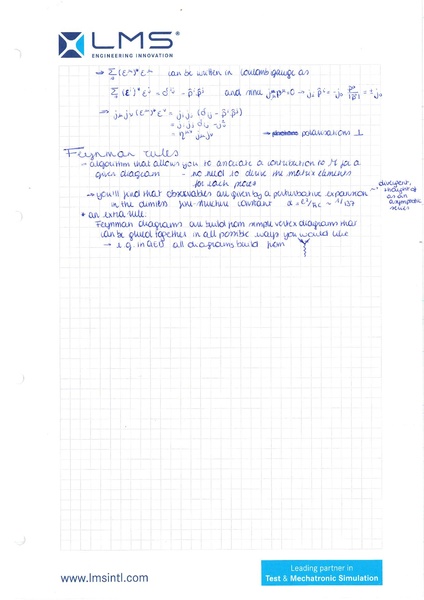 LMS
ENGINEERING INNOVATION
→ Σ (ε^μ)* ε^ν can be written in Coulomb gauge as
Σ (ε^i)* ε^j = δ^ij - p̂^i p̂^j and since j_μ p^μ = 0 → j_i p̂^i = -j_0 p^0/|p̂| = ± j_0
→ j_μ j_ν (ε^μ)* ε^ν = j_i j_j (δ^ij - p̂^i p̂^j)
= j_i j_i - j_0²
= η^μν j_μ j_ν
→ polarisations ⊥
Feynman rules
- algorithm that allows you to associate a contribution to M for a
given diagram - no need to derive the matrix elements
for each process
→ you'll find that observables are given by a perturbative expansion
in the dimless fine-structure constant α = e²/ħc ~ 1/137
divergent,
thought of
as an
asymptotic
series
• an extra rule:
Feynman diagrams are build from simple vertex diagrams that
can be glued together in all possible ways you would like
→ e.g. in QED all diagrams build from
www.lmsintl.com
Leading partner in
Test & Mechatronic Simulation